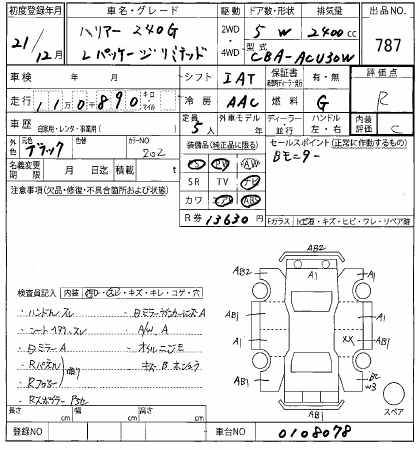 初度登録年月 車名・グレード 駆動 ドア数・形状 排気量 出品NO.
21/12月 ハリアー 240G Lパッケージリミテッド 2WD 4WD 5 W 2400 cc 787
型式 CBA-ACU30W
車検 年 月 シフト IAT 保証書 有・無 評価点
走行 110千890 キロ マイル 冷房 AAC 燃料 G R
車歴 自家用・レンタ・事業用( ) 定員 5人 外車モデル 年 ディーラー 並行 ハンドル 左・右 内装評価 C
外色 元色 ブラック 色替 カラーNO 202 装備品(純正品に限る) セールスポイント(正常に動作するもの)
名義変更期限 月 日迄 積載 t PS PW SW Bモニター
注意事項(欠品・修復・不具合箇所および状態) SR TV ナビ
カワ エアB ABS
R券 13630 円 Fガラス 飛石・キズ・ヒビ・ワレ・リペア跡
検査員記入 内装 汚レ・スレ・キズ・キレ・コゲ・穴
・ハンドルスレ
・シート スレ ・A/W A
・Bミラー A
・Rパネル
・Rフロアー
・Rスポイラー
AB2
AB2 A1 A1
AB1 A1
A1 XX AB1
AB1 B2
W3
AB1 スペア
長さ cm 幅 cm 高さ cm
登録NO 車台NO 0108078